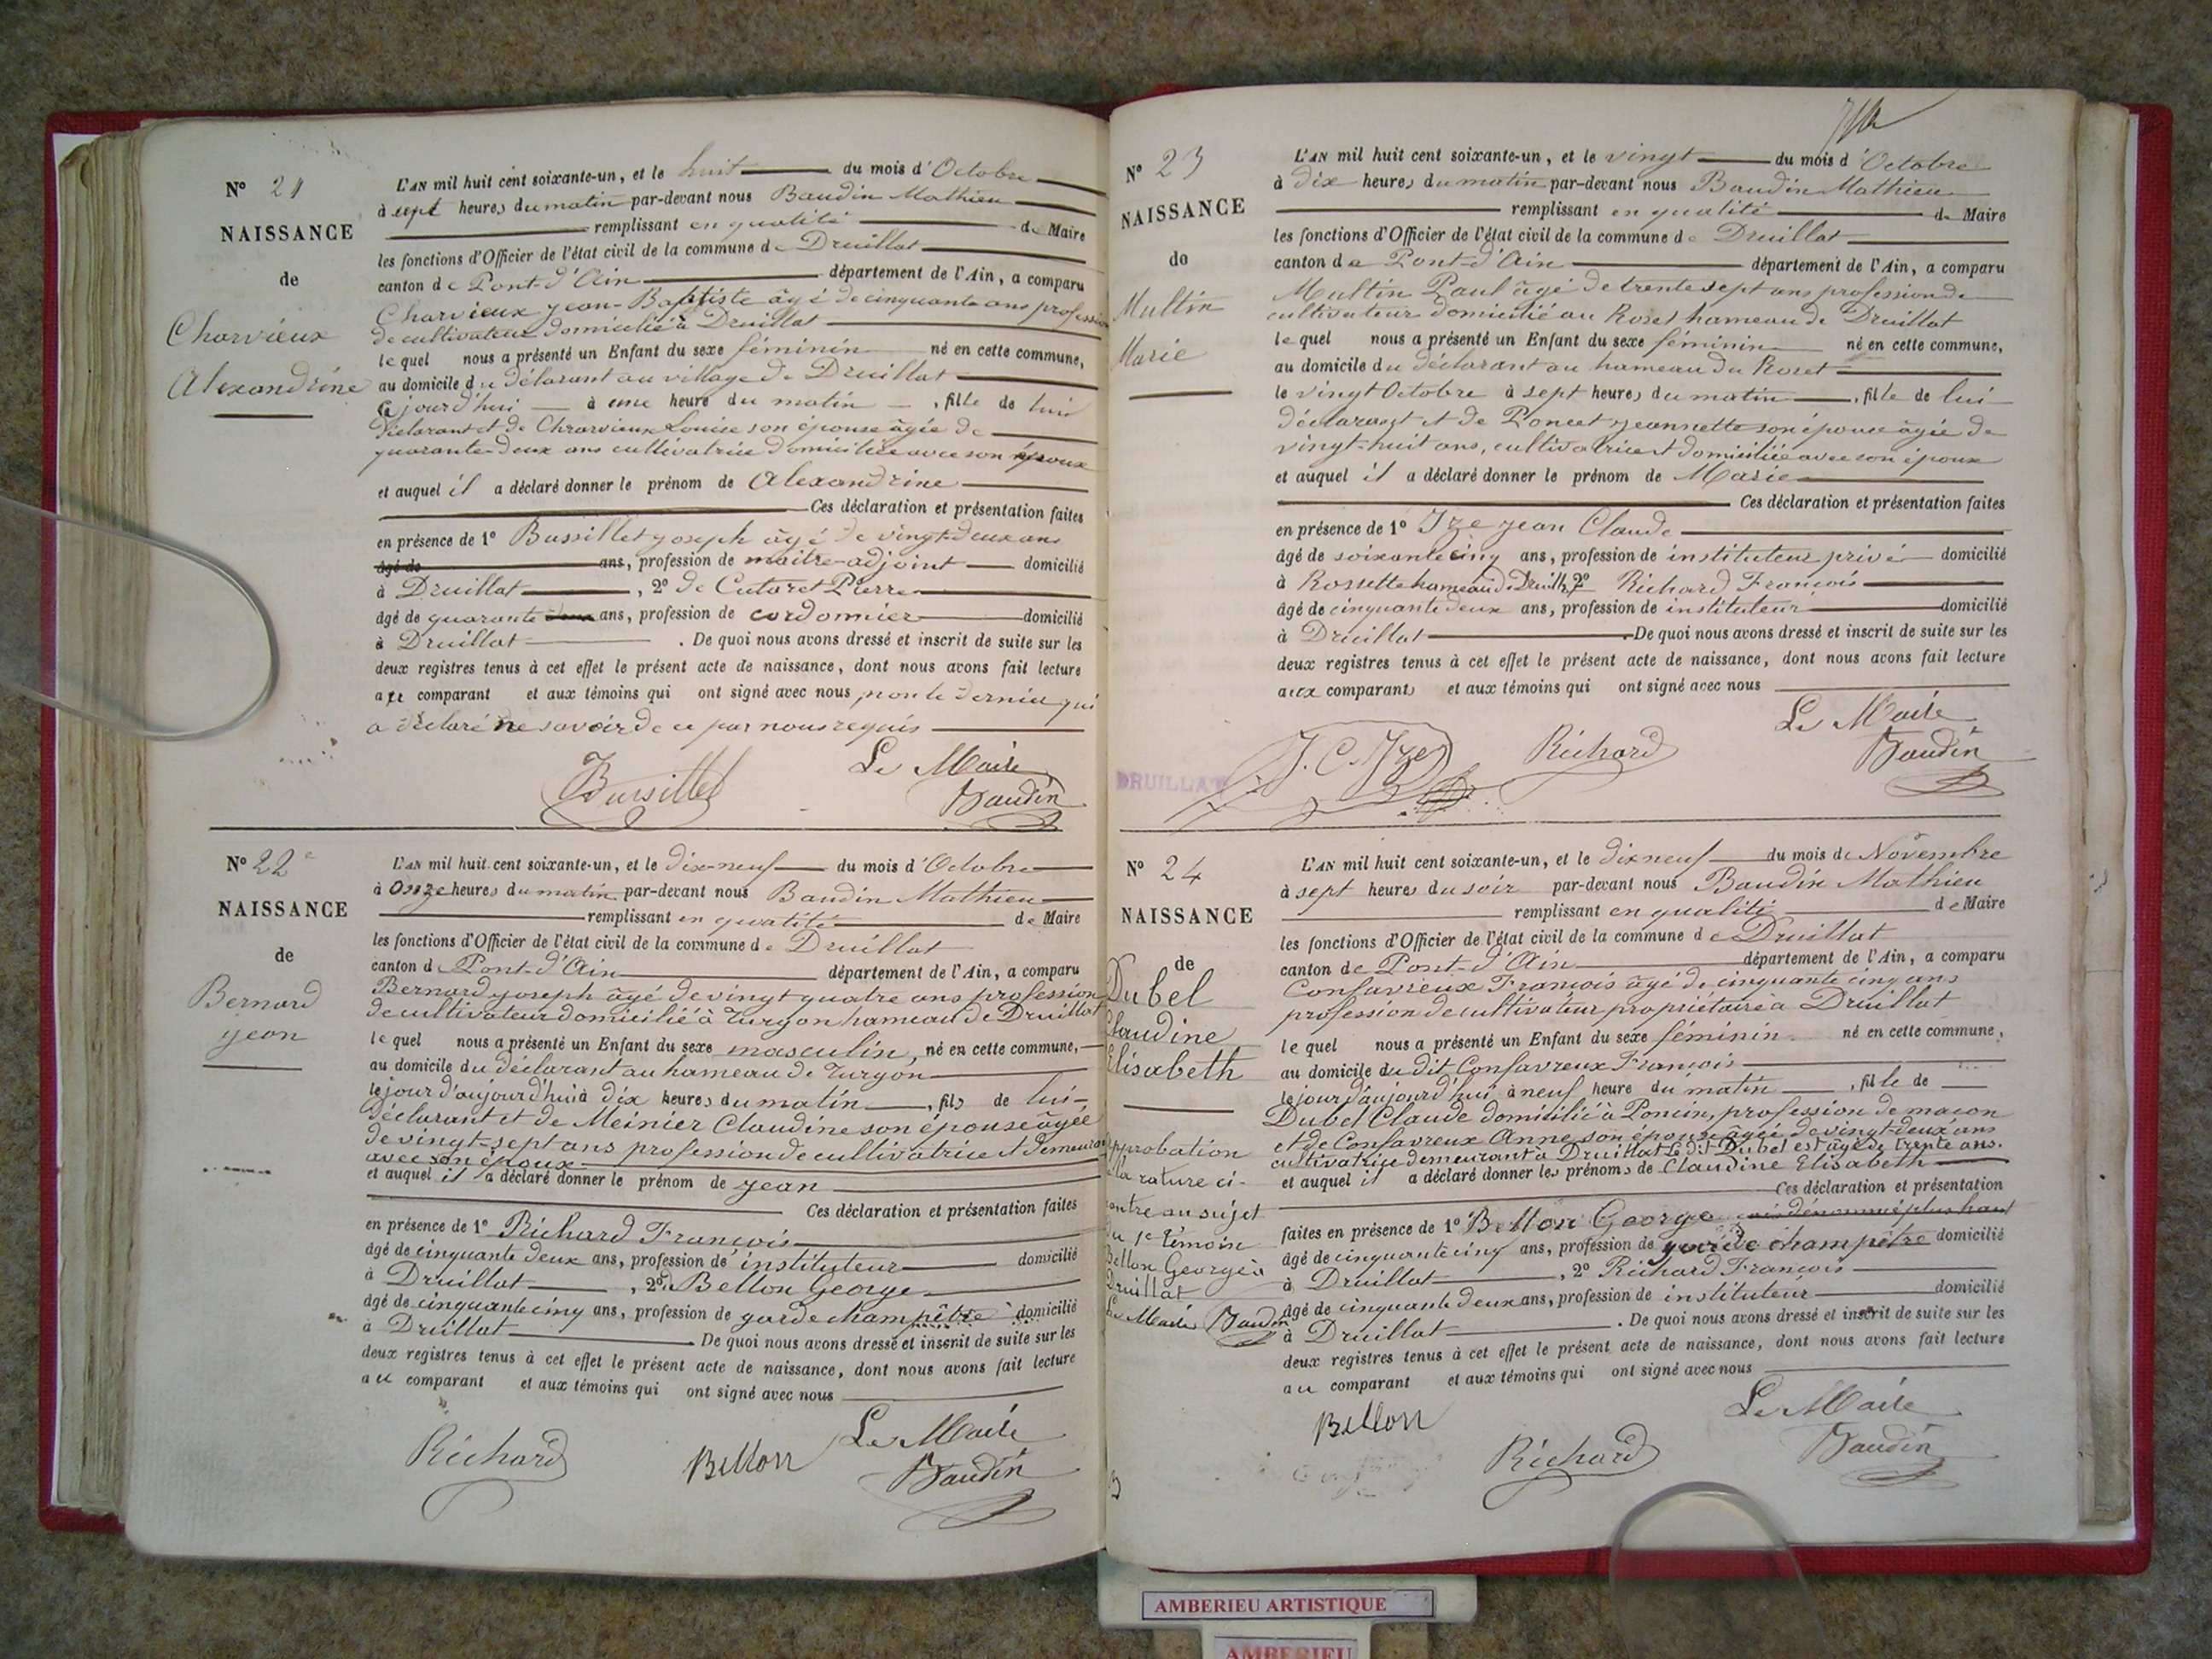 N° 21
NAISSANCE
de
Charvieux
Alexandrine
L'AN mil huit cent soixante-un, et le huit du mois d'Octobre
à sept heures du matin par-devant nous Baudin Mathieu
remplissant en qualité de Maire
les fonctions d'Officier de l'état civil de la commune de Druillat
canton de Pont-d'Ain département de l'Ain, a comparu
Charvieux Jean-Baptiste âgé de cinquante ans profession
de cultivateur domicilié à Druillat
lequel nous a présenté un Enfant du sexe féminin né en cette commune,
au domicile du délarant au village de Druillat
Ce jourd'hui à une heure du matin, fille de lui
déclarant et de Charvieux Louise son épouse âgée de
quarante-deux ans cultivatrice domiciliée avec son époux
et auquel il a déclaré donner le prénom de Alexandrine
Ces déclaration et présentation faites
en présence de 1° Bussillet Joseph âgé de vingt-deux ans
âgé de ans, profession de maître-adjoint domicilié
à Druillat, 2° de Cutaret Pierre
âgé de quarante deux ans, profession de cordonnier domicilié
à Druillat. De quoi nous avons dressé et inscrit de suite sur les
deux registres tenus à cet effet le présent acte de naissance, dont nous avons fait lecture
au comparant et aux témoins qui ont signé avec nous non le dernier qui
a déclaré ne savoir de ce par nous requis
Bussillet
Le Maire
Baudin
N° 22
NAISSANCE
de
Bernard
Jean
L'AN mil huit cent soixante-un, et le dix-neuf du mois d'Octobre
à Onze heures du matin par-devant nous Baudin Mathieu
remplissant en qualité de Maire
les fonctions d'Officier de l'état civil de la commune de Druillat
canton de Pont-d'Ain département de l'Ain, a comparu
Bernard Joseph âgé de vingt quatre ans profession
de cultivateur domicilié à Turgon hameau de Druillat
lequel nous a présenté un Enfant du sexe masculin, né en cette commune,
au domicile du déclarant au hameau de Turgon
le jour d'aujourd'hui à dix heures du matin, fils de lui-
déclarant et de Meinier Claudine son épouse âgée
de vingt-sept ans profession de cultivatrice et demeurant
avec son époux
et auquel il a déclaré donner le prénom de Jean
Ces déclaration et présentation faites
en présence de 1° Richard François
âgé de cinquante deux ans, profession de instituteur domicilié
à Druillat, 2° Bellon George
âgé de cinquante cinq ans, profession de garde champêtre domicilié
à Druillat De quoi nous avons dressé et inscrit de suite sur les
deux registres tenus à cet effet le présent acte de naissance, dont nous avons fait lecture
au comparant et aux témoins qui ont signé avec nous
Richard
Bellon
Le Maire
Baudin
N° 23
NAISSANCE
de
Multin
Marie
L'AN mil huit cent soixante-un, et le vingt du mois d'Octobre
à dix heures du matin par-devant nous Baudin Mathieu
remplissant en qualité de Maire
les fonctions d'Officier de l'état civil de la commune de Druillat
canton de Pont-d'Ain département de l'Ain, a comparu
Multin Paul âgé de trente sept ans profession de
cultivateur domicilié au Roset hameau de Druillat
lequel nous a présenté un Enfant du sexe féminin né en cette commune,
au domicile du déclarant au hameau du Roset
le vingt Octobre à sept heures du matin, fille de lui
déclarant et de Poncet Jeannette son épouse âgée de
vingt-huit ans, cultivatrice et domiciliée avec son époux
et auquel il a déclaré donner le prénom de Marie
Ces déclaration et présentation faites
en présence de 1° Jze Jean Claude
âgé de soixante cinq ans, profession de instituteur privé domicilié
à Rossette hameau de Druillat 2° Richard François
âgé de cinquante deux ans, profession de instituteur domicilié
à Druillat. De quoi nous avons dressé et inscrit de suite sur les
deux registres tenus à cet effet le présent acte de naissance, dont nous avons fait lecture
aux comparants et aux témoins qui ont signé avec nous
J. C. Jze
Richard
Le Maire
Baudin
DRUILLAT
N° 24
NAISSANCE
de
Dubel
Claudine
Elisabeth
approbation
la rature ci-
contre au sujet
du 1er témoin
Bellon George à
Druillat
Le Maire Baudin
L'AN mil huit cent soixante-un, et le dix neuf du mois de Novembre
à sept heures du soir par-devant nous Baudin Mathieu
remplissant en qualité de Maire
les fonctions d'Officier de l'état civil de la commune de Druillat
canton de Pont-d'Ain département de l'Ain, a comparu
Confavreux François âgé de cinquante cinq ans
profession de cultivateur propriétaire à Druillat
lequel nous a présenté un Enfant du sexe féminin né en cette commune,
au domicile du dit Confavreux François
le jour d'aujourd'hui à neuf heure du matin, fille de
Dubel Claude domicilié à Poncin, profession de maçon
et de Confavreux Anne son épouse âgée de vingt-deux ans
cultivatrice demeurant à Druillat Le dit Dubel est âgé de trente ans.
et auquel il a déclaré donner les prénoms de Claudine Elisabeth
Ces déclaration et présentation
faites en présence de 1° Bellon George ci dénommé plus haut
âgé de cinquante cinq ans, profession de garde champêtre domicilié
à Druillat, 2° Richard François
âgé de cinquante deux ans, profession de instituteur domicilié
à Druillat. De quoi nous avons dressé et inscrit de suite sur les
deux registres tenus à cet effet le présent acte de naissance, dont nous avons fait lecture
au comparant et aux témoins qui ont signé avec nous
Bellon
Richard
Le Maire
Baudin
AMBERIEU ARTISTIQUE
AMBERIEU